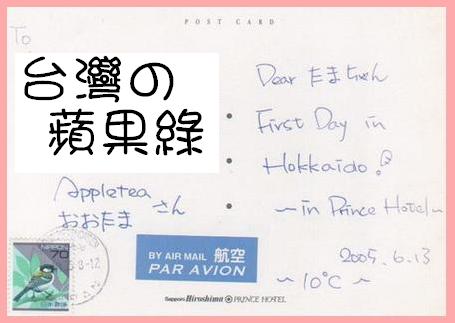 POST CARD
To
台灣の
蘋果綠
Appletea
おおたま さん
Dear たまちゃん
First Day in
Hokkaido!
~in Prince Hotel~
2005.6.13
~10°C~
NIPPON
70
日本郵便
BY AIR MAIL 航空
PAR AVION
Sapporo Hiroshima PRINCE HOTEL